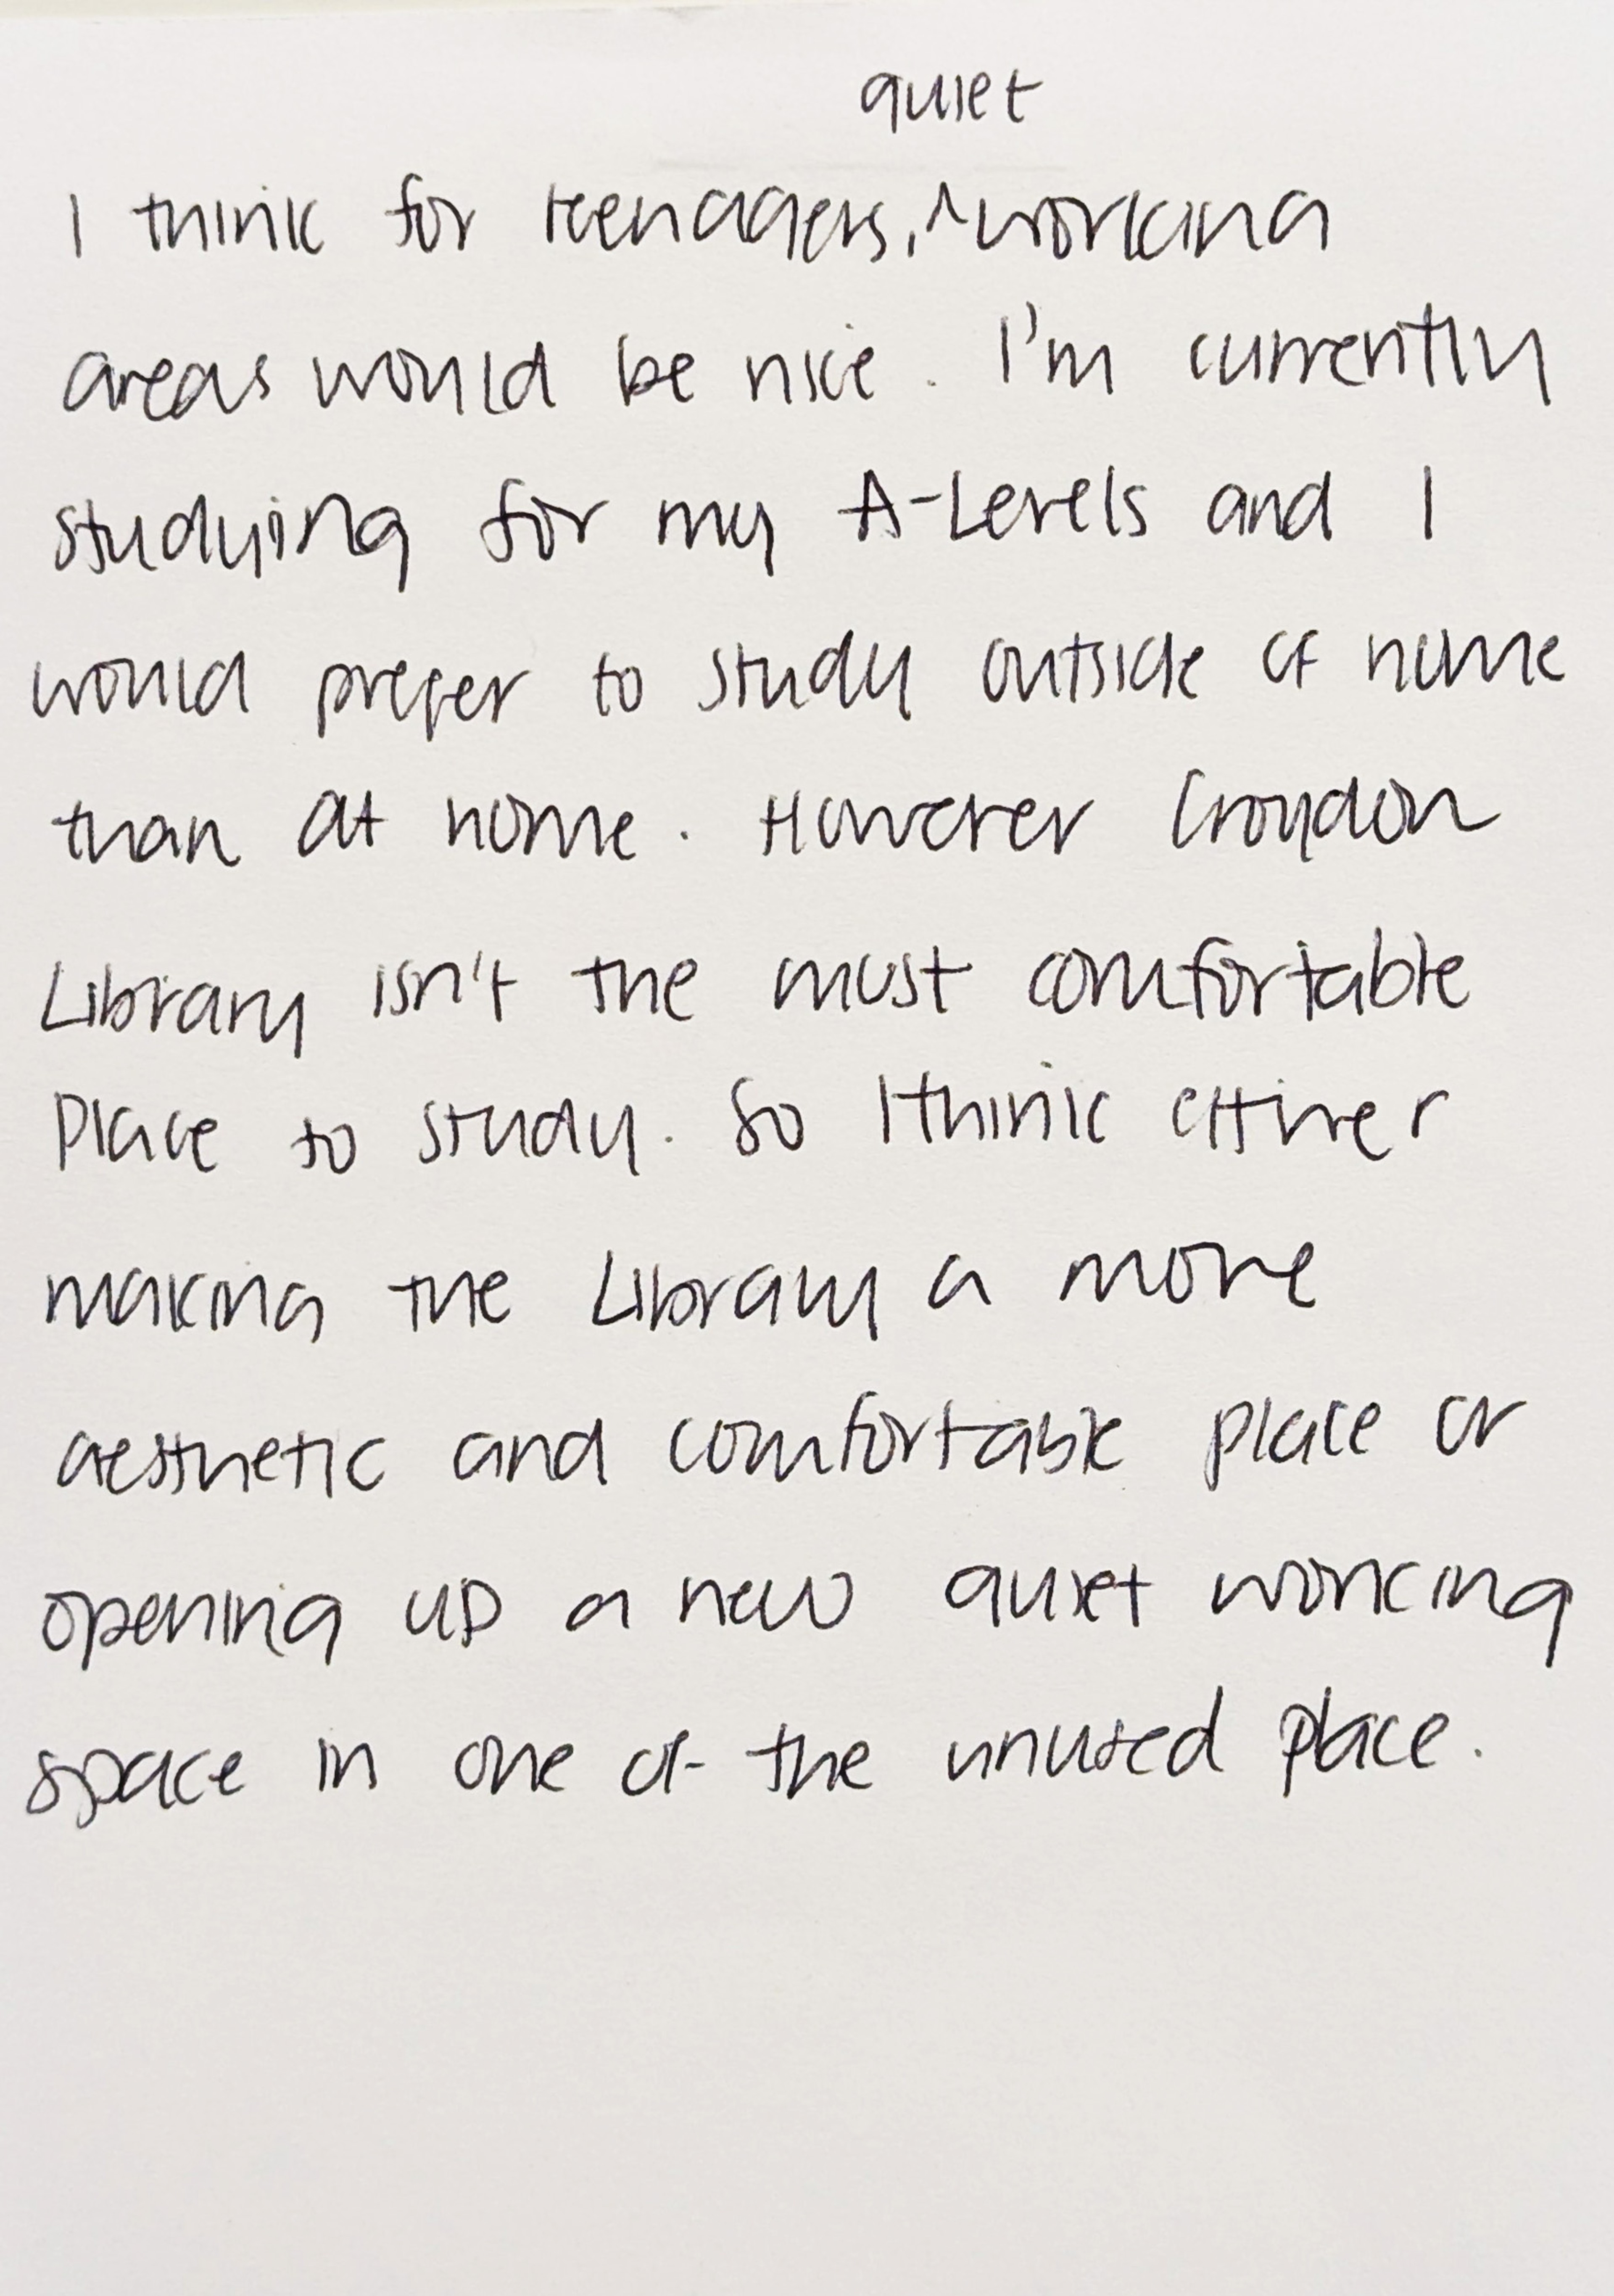 quiet
I think for teenagers, ^working
areas would be nice. I'm currently
studying for my A-Levels and I
would prefer to study outside of home
than at home. However Croydon
Library isn't the most comfortable
Place to study. So I think either
making the Library a more
aesthetic and comfortable place or
opening up a new quiet working
space in one of the unused place.